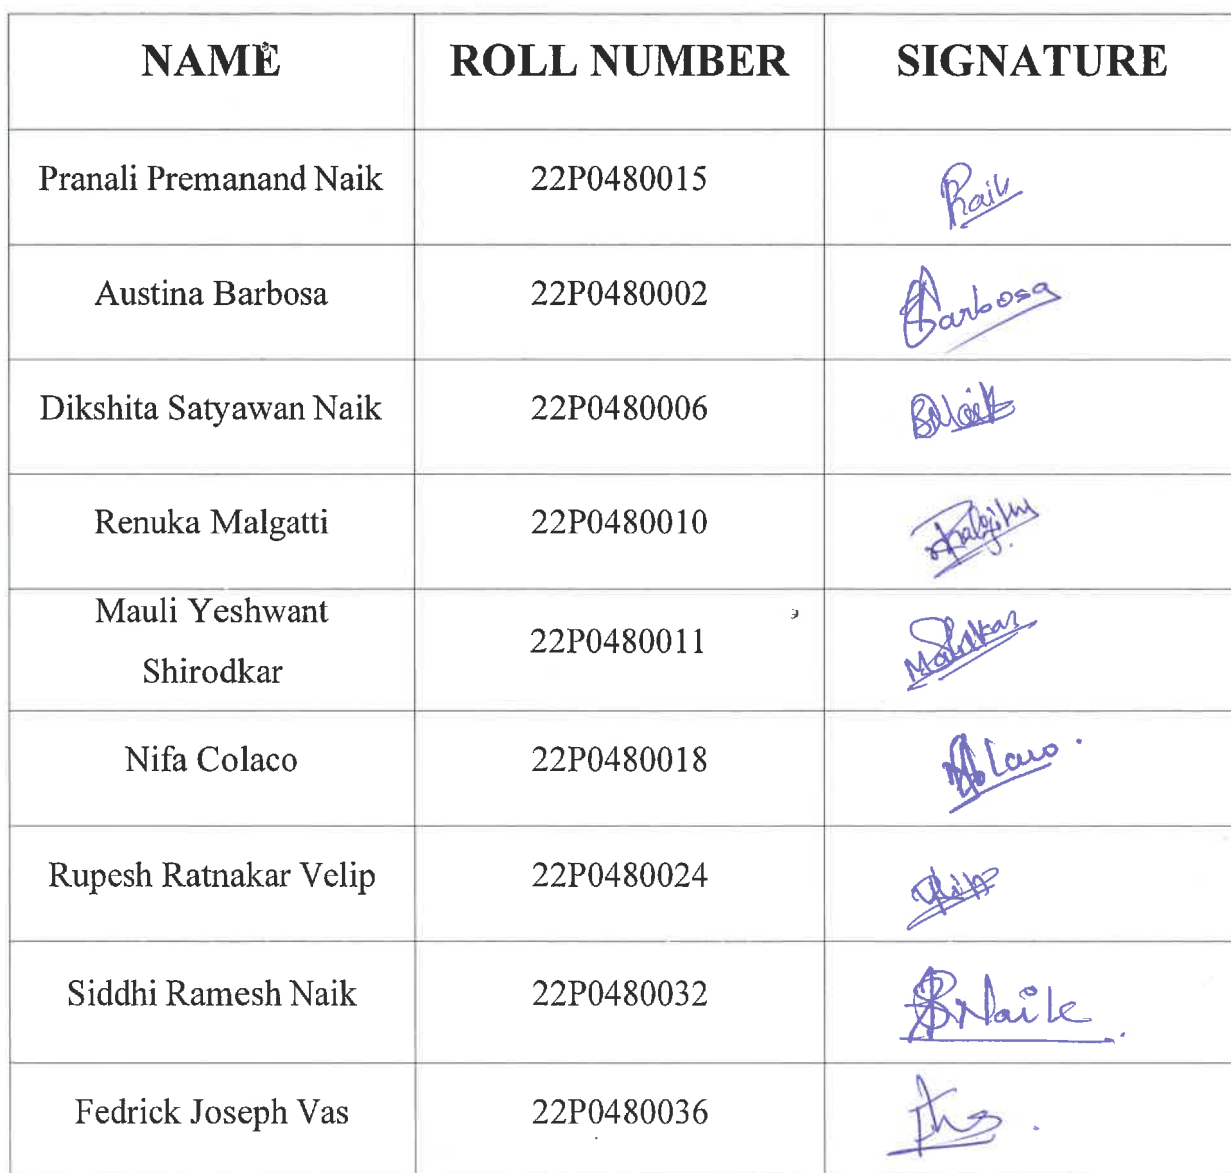 NAME ROLL NUMBER SIGNATURE
Pranali Premanand Naik 22P0480015 Pnaik
Austina Barbosa 22P0480002 Barbosa
Dikshita Satyawan Naik 22P0480006
Renuka Malgatti 22P0480010
Mauli Yeshwant
Shirodkar 22P0480011
Nifa Colaco 22P0480018
Rupesh Ratnakar Velip 22P0480024
Siddhi Ramesh Naik 22P0480032 SNaik
Fedrick Joseph Vas 22P0480036